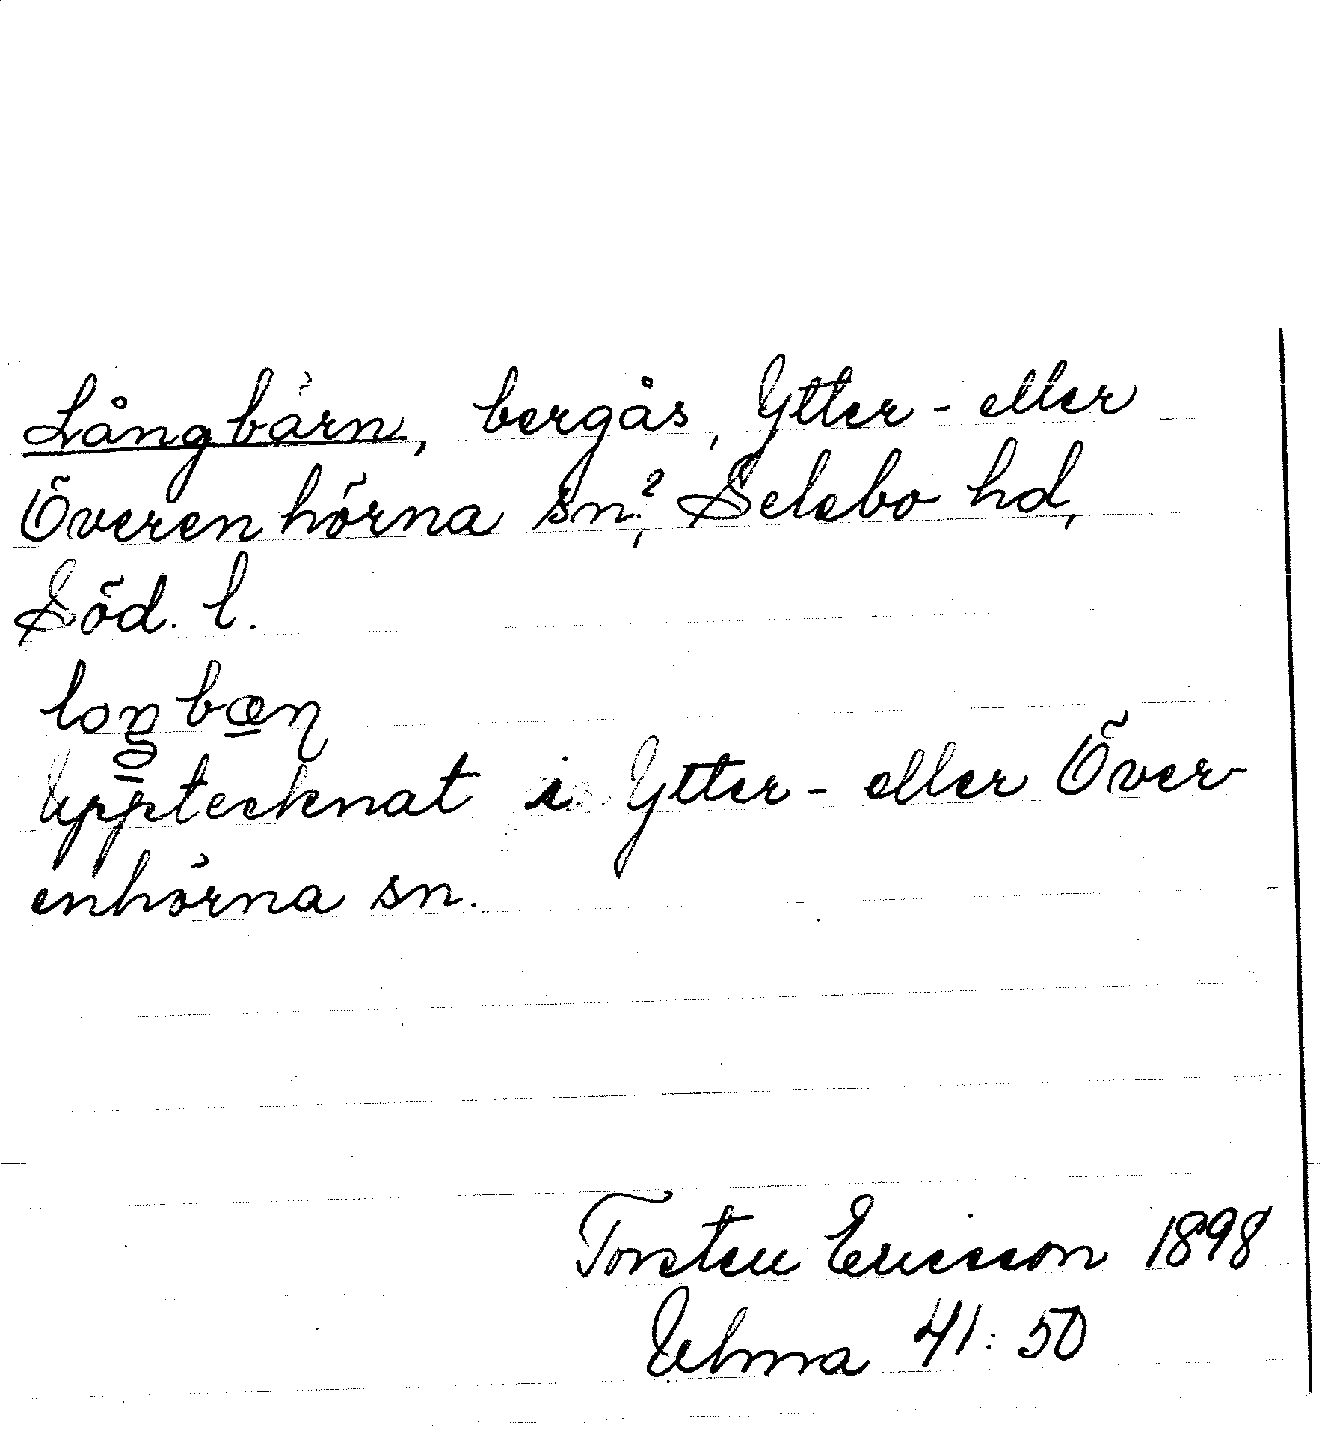 Långbärn, bergås, Ytter- eller
Överenhörna sn?, Selebo hd,
Söd. l.
Upptecknat i Ytter- eller Över-
enhörna sn.
Torsten Ericsson 1898
Ulma 41:50